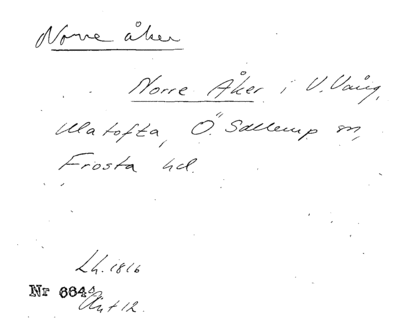 Norre åker
Norre Åker i V. Vång,
Ulatofta, Ö. Sallerup sn,
Frosta hd.
Lh. 1816
Nr 6644
Akt 12.